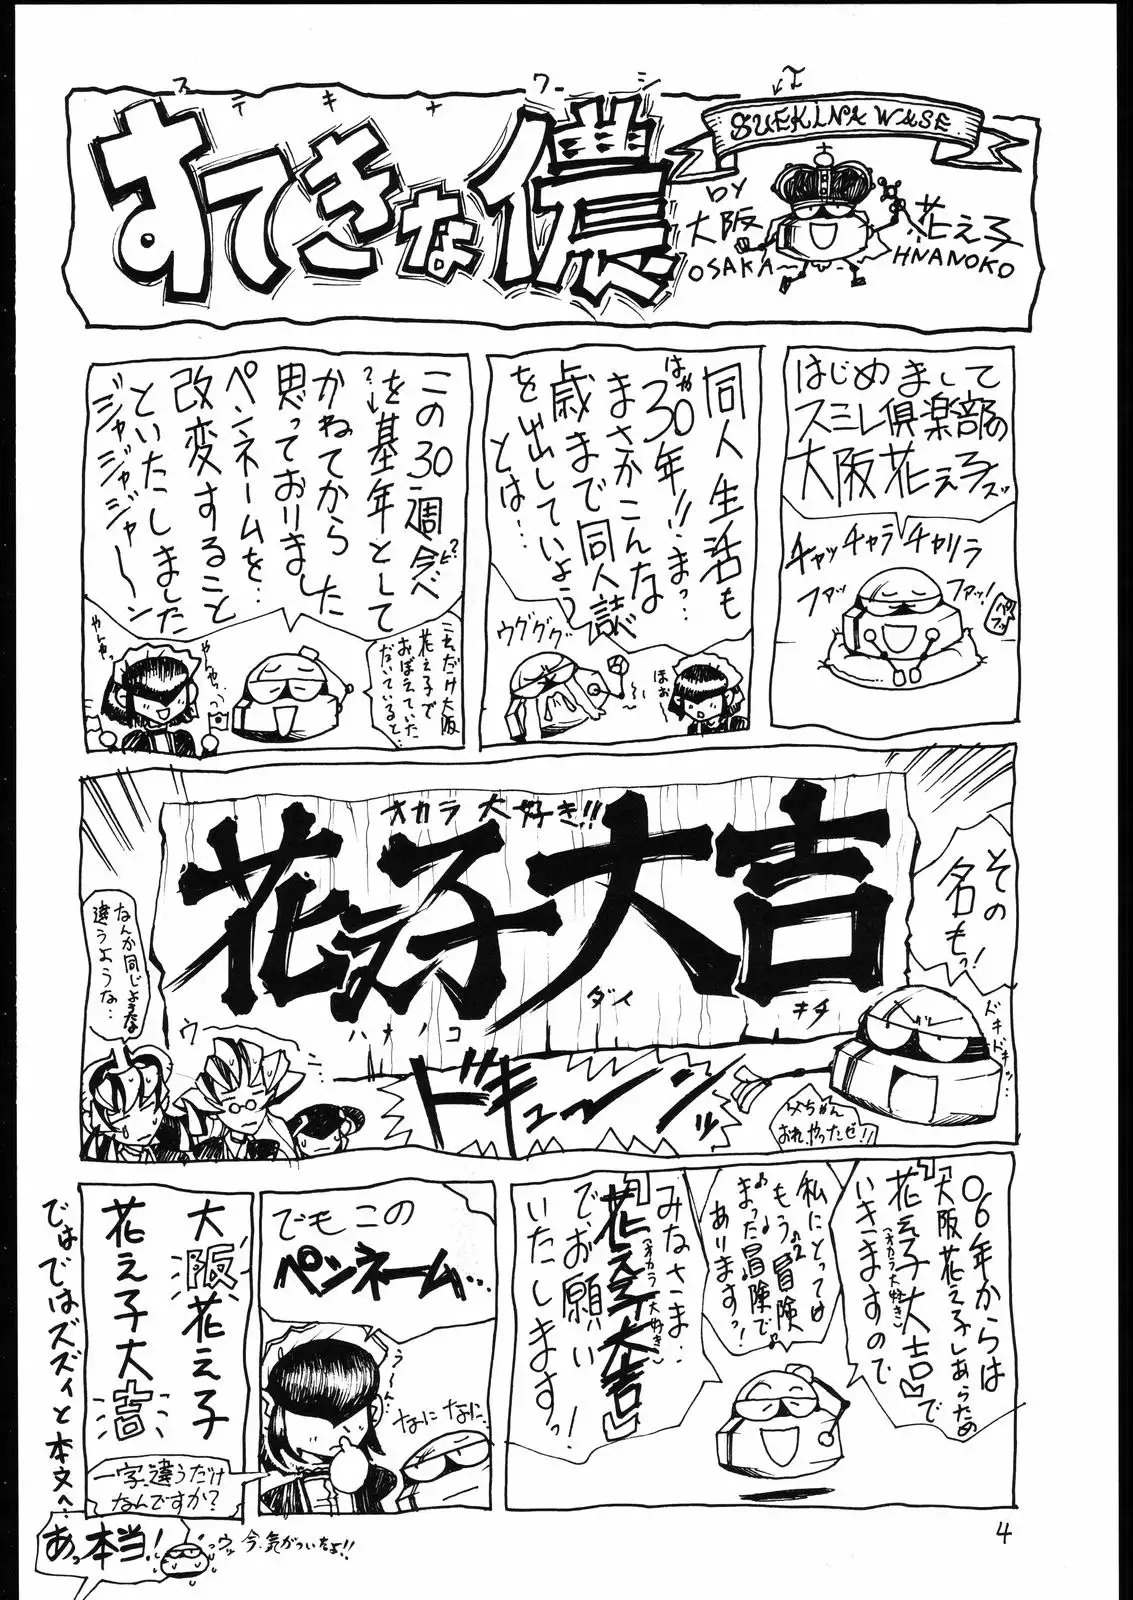 ステキナワシ
すてきな儂
SUEKINA WASE
BY
大阪
OSAKA
花え子
HNANOKO
はじめまして
スミレ倶楽部の
大阪花え子ズ
チャッチャラチャリラ
ファッ
ファッ!
同人生活も
はや30年!!まっ…
まさかこんな
歳まで同人誌
を出していよう
とは…
ウグググ
ほぉ
この30週令べ
を基年として
かねてから
思っておりました
ペンネームを…
改変すること
といたしました
ジャジャジャジャ〜ン
こそだけ大阪
花え子で
おぼえていた
だいていると…
やんややんや
その
名もっ!
オカラ大好き!!
花え子大吉
ハナノコ
ダイ
キチ
ドキドキッ
ドキューーンッ
父ちゃん
おれ、やったぜ!!
なんか同じような
違うような…
ウ
ニ
06年からは
『大阪花え子』あらため
『花え子大吉』で
(オカラ大好き)
いきますので
私にとっては
もう冒険
まった冒険で
ありますっ!
みなさま…
『花え子大吉』
(オカラ大好き)
でお願い
いたしますっ!
でもこの
ペンネーム…
うーん
なになに
大阪花え子
花え子大吉
一字違うだけ
なんですか?
ではではズズィと本文へ…
あっ本当!
ウッ今、気がついたよ!!
4